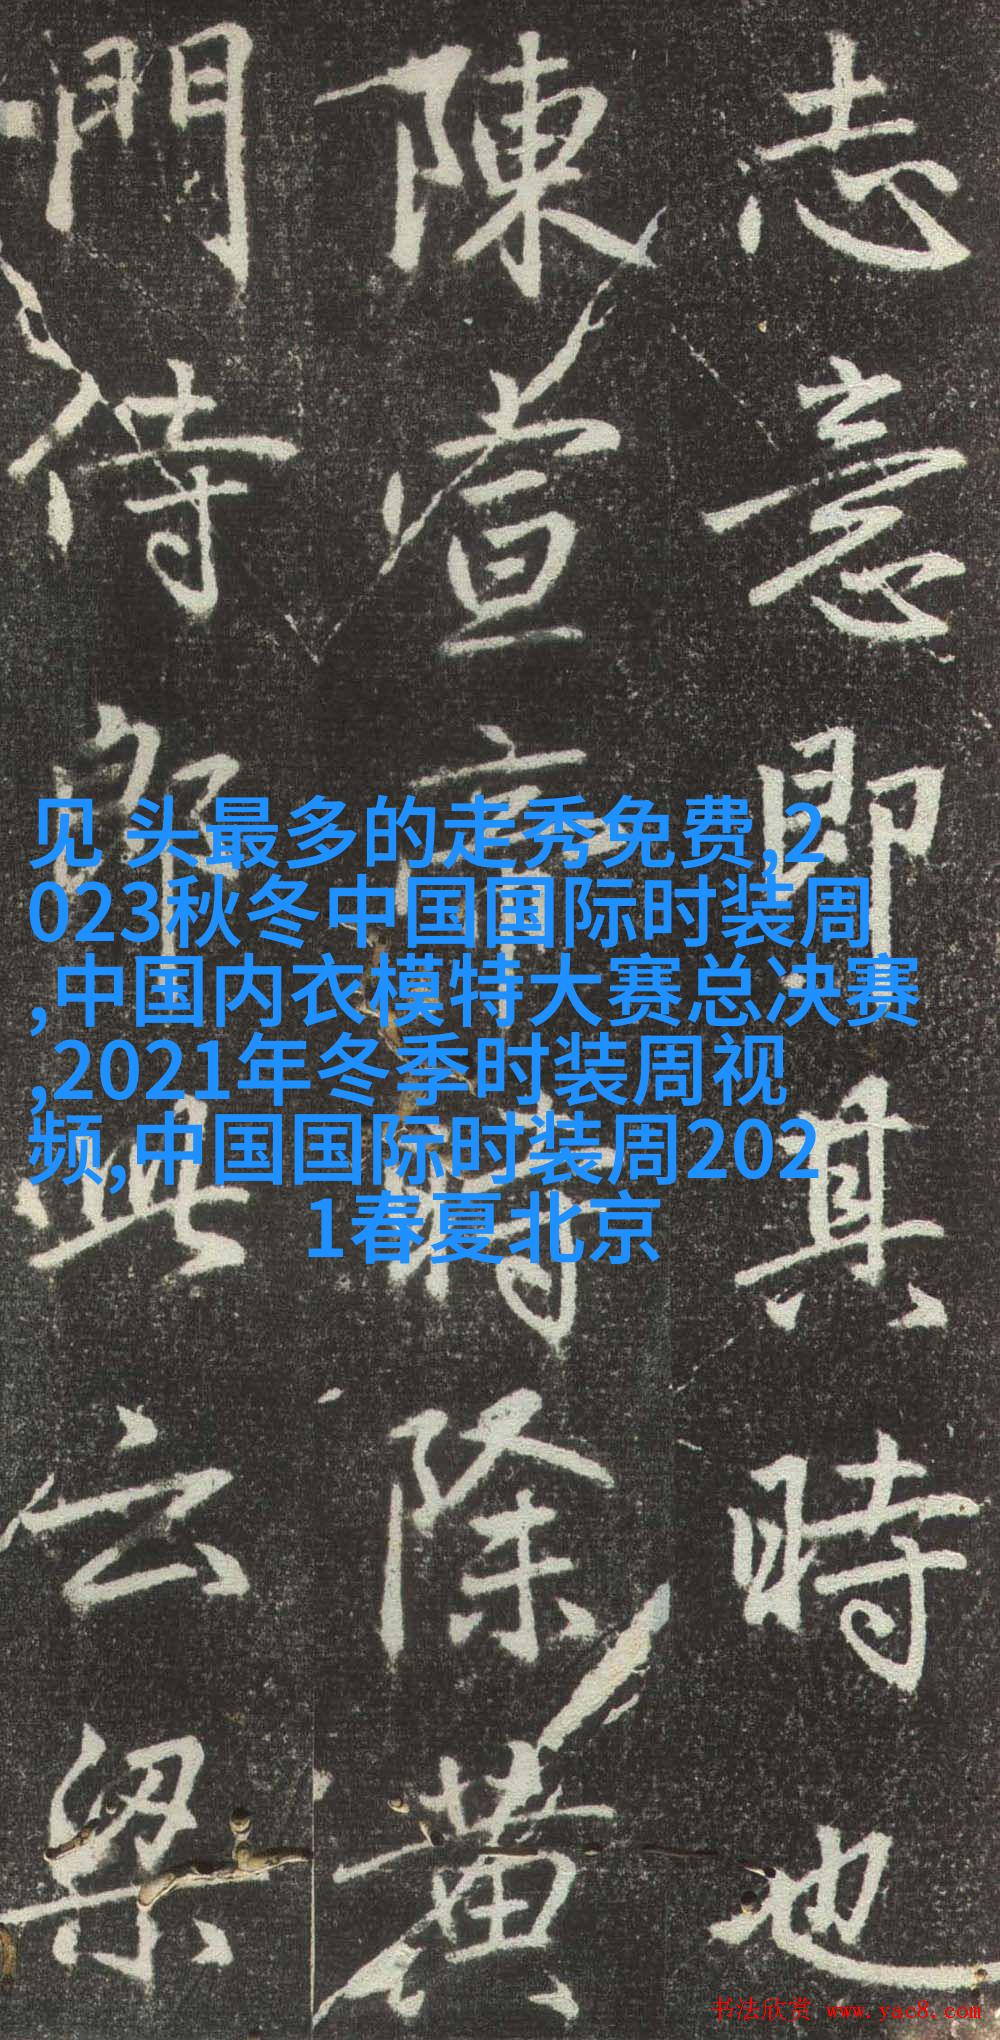 志意即其時也
陳宣帝時除黃
門侍郎 云梁
见 头最多的走秀免费,2
023秋冬中国国际时装周
,中国内衣模特大赛总决赛
,2021年冬季时装周视
频,中国国际时装周202
1春夏北京
书法欣赏 www.yac8.com